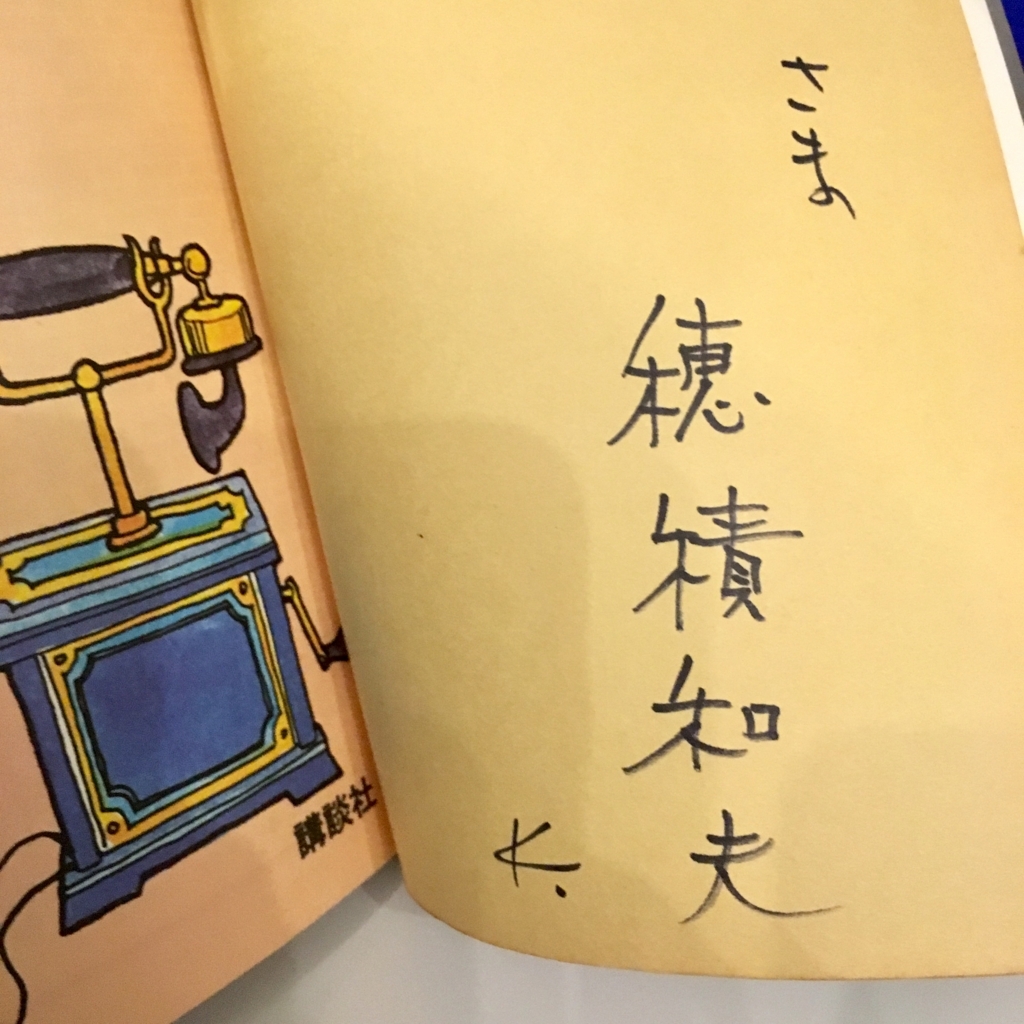 さま
穂積和夫
K.
講談社